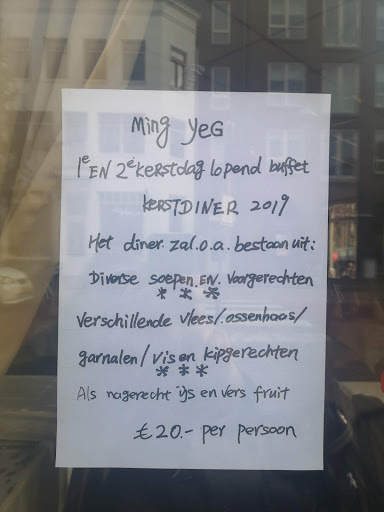 Ming YeG
1e EN 2e kerstdag lopend buffet
KERSTDINER 2019
Het diner zal o.a. bestaan uit:
Diverse soepen EN Voorgerechten
* * *
verschillende vlees/ossenhaas/
garnalen/vis en kipgerechten
* * *
Als nagerecht ijs en vers fruit
€ 20.- per persoon